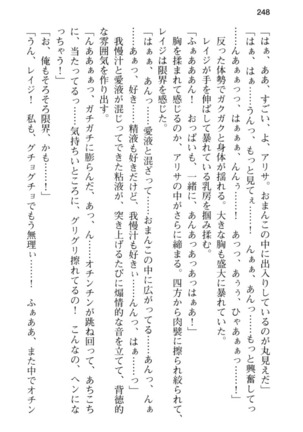 248
「はぁ、ああ、すごいよ、アリサ。おまんこの中に出入りしているのが丸見えだ」
「はぁっ、はぁっ……うんっ、もっと見てぇ……！ んぁ、あんっ……もっと興奮して
……んあぁぁっっっ、はぁぁぁ、んんぅ……！ あっっ、あぅぅ、ひゃあぁぁっっ……！」
反った体勢でガクガクと身体が揺れる。大きな胸も盛大に暴れていた。
レイジが手を伸ばして暴れている乳房を掴み揉む。
「ふぁああんっ！ おっぱいも、一緒に、あんあっあっっはぁぁ！」
胸を揉まれて感じるのか、アリサの中がさらに締まる。四方から肉襞に擦られ絞られて、
レイジは限界を感じた。
「はぁぁ、んあっ……愛液と混ざって……おまんこの中に広がってる……あんっ、んぁ
ぁっ……もっと、好きっ……精液も好きだけど、我慢汁も好きぃ……んんっ、はぁっ……っ」
我慢汁と愛液が混じってできた粘液が、突き上げるたびに煽情的な音を立てて、背徳的
な雰囲気を作り出す。
「んああぁぁっっ、ガチガチに膨らんだ、あっ、ん……オチンチンが跳ね回って、あちこち
に、当たってるっ……気持ちいいところに、グリグリ擦れてるの！ こんなの、ヘンにな
っちゃう！」
「お、俺もそろそろ限界、かも……！」
「うん、レイジ！ 私も、グチョグチョでもう無理ぃ……！ ふぁああ、また中でオチン